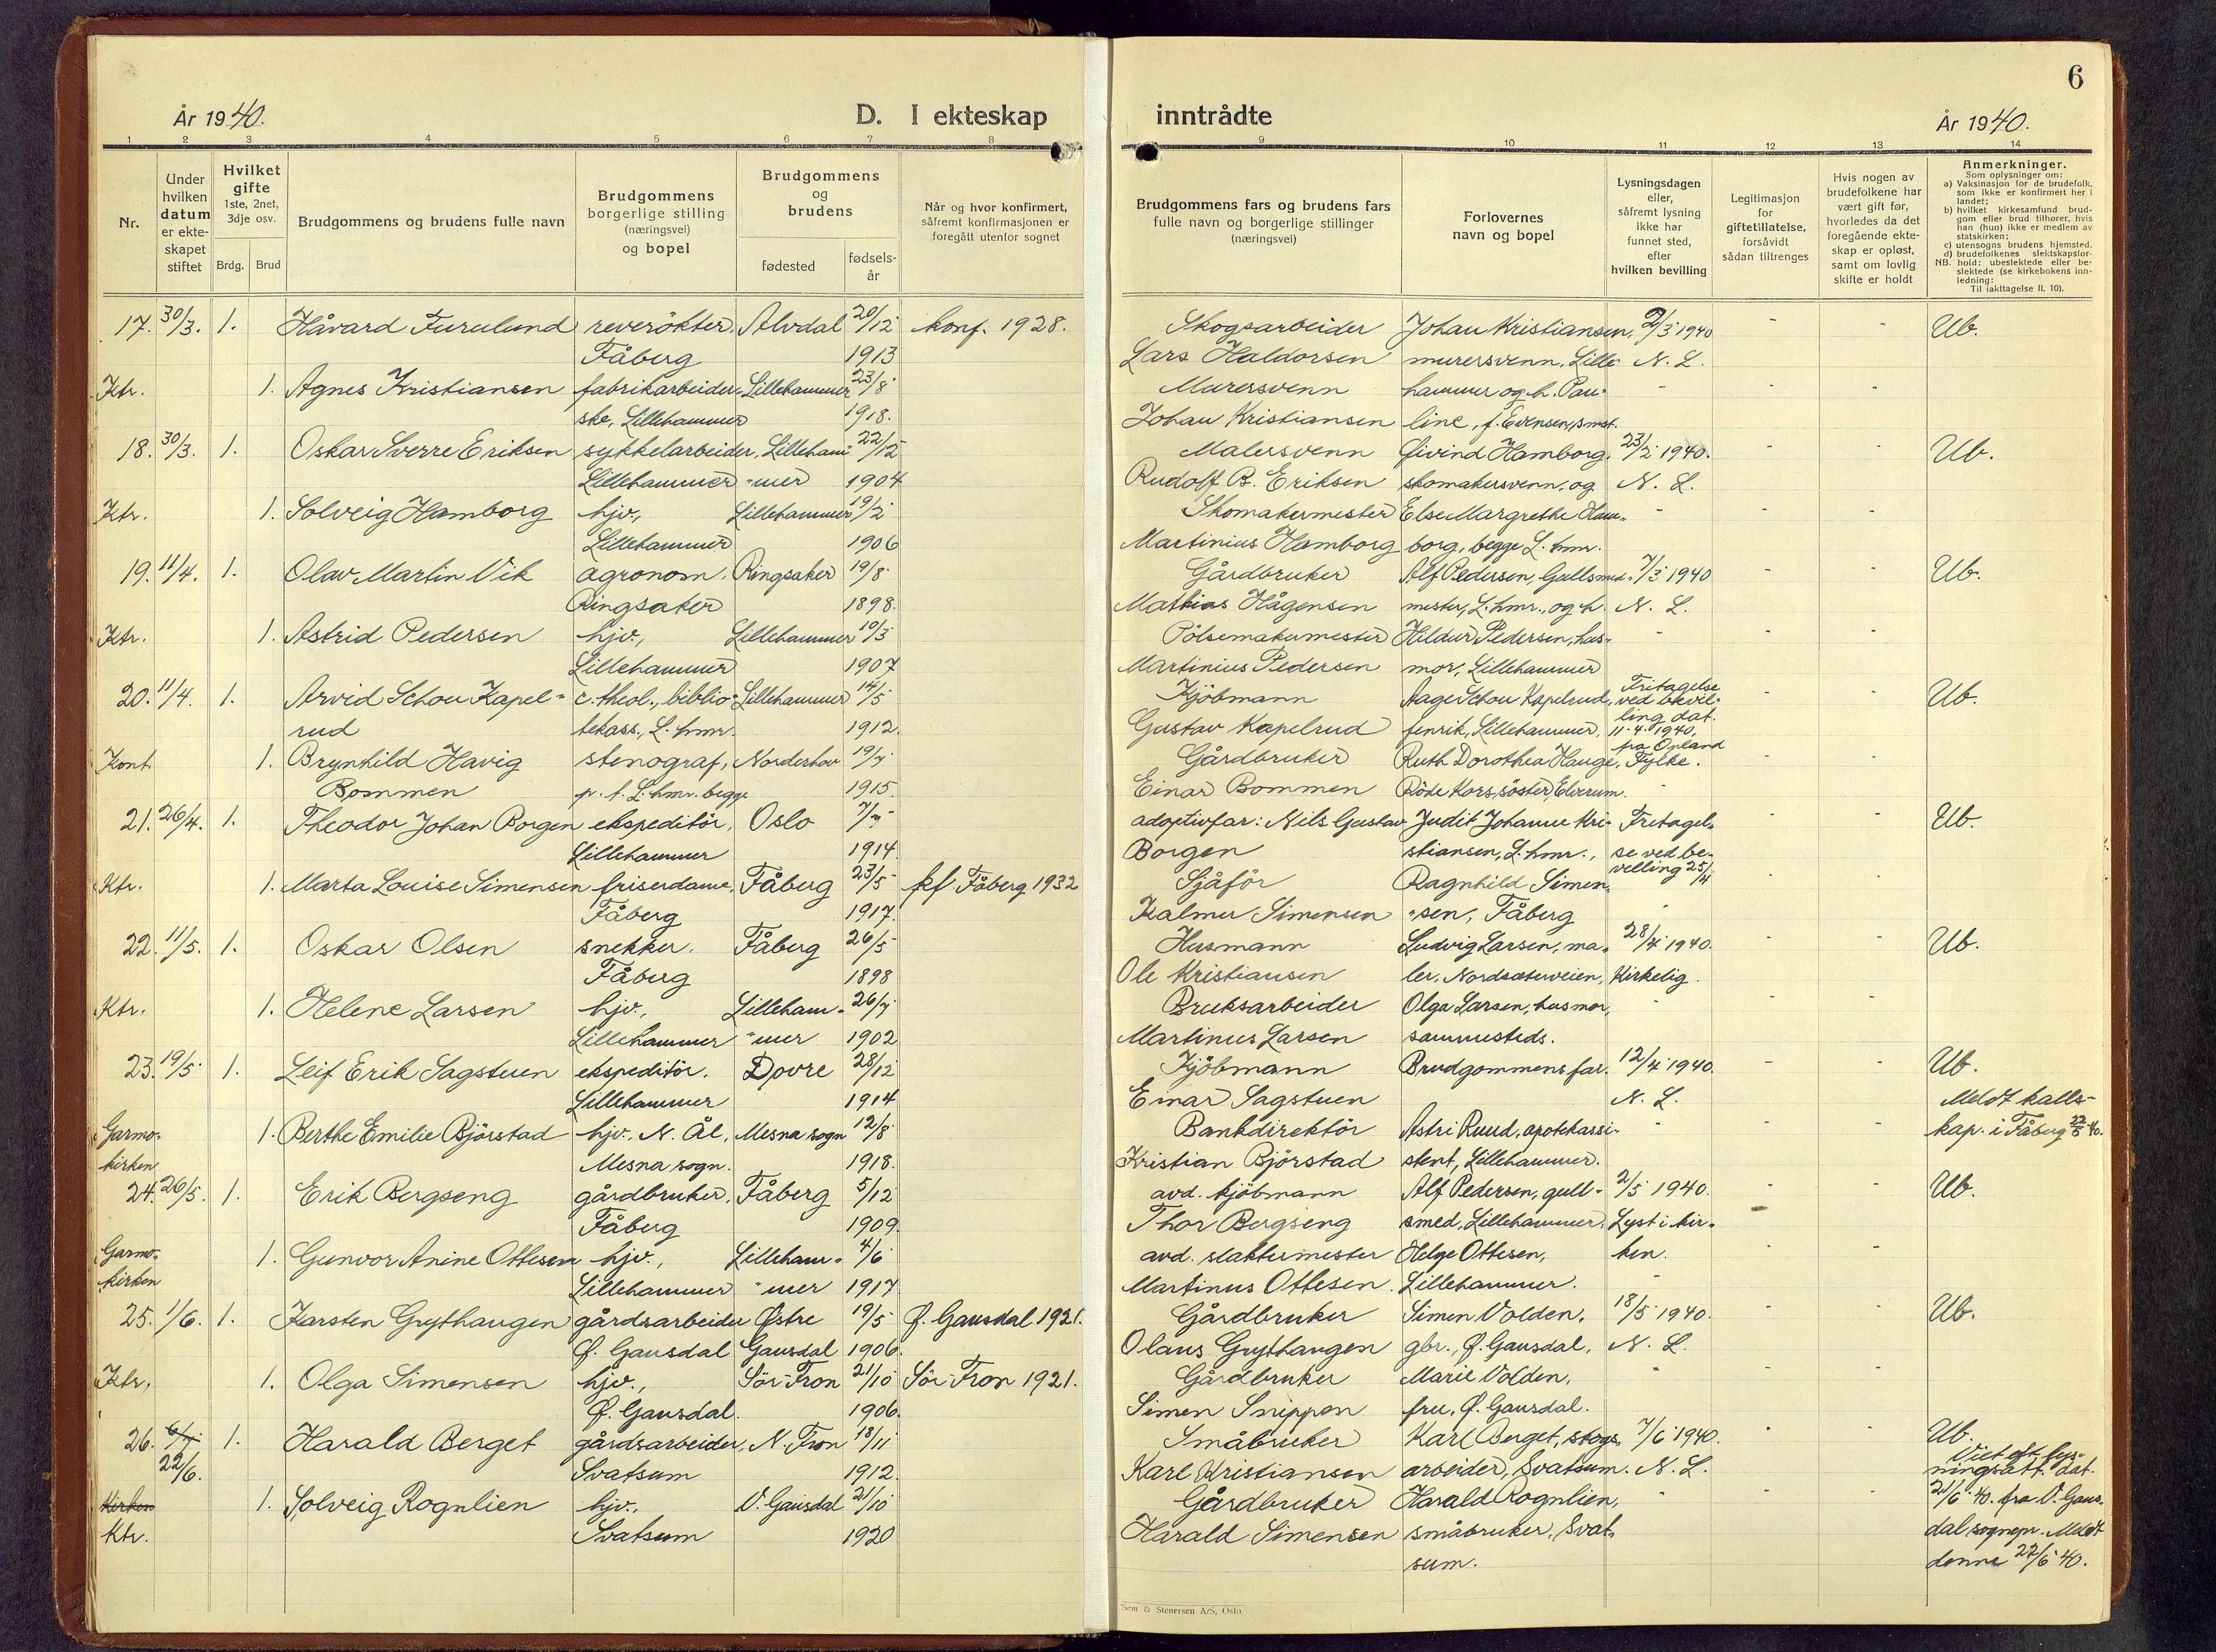 År 1940.
D. I ekteskap
inntrådte
År 1940.
6
1 2 3 4 5 6 7 8 9 10 11 12 13 14
Nr.
Under hvilken datum er ekteskapet stiftet
Hvilket gifte 1ste, 2net, 3dje osv.
Brdg. Brud
Brudgommens og brudens fulle navn
Brudgommens borgerlige stilling (næringsvei) og bopel
Brudgommens og brudens
fødested
fødselsår
Når og hvor konfirmert, såfremt konfirmasjonen er foregått utenfor sognet
Brudgommens fars og brudens fars fulle navn og borgerlige stillinger (næringsvei)
Forlovernes navn og bopel
Lysningsdagen eller, såfremt lysning ikke har funnet sted, efter hvilken bevilling
Legitimasjon for giftetillatelse, forsåvidt sådan tiltrenges
Hvis nogen av brudefolkene har vært gift før, hvorledes da det foregående ekteskap er opløst, samt om lovlig skifte er holdt
Anmerkninger.
Som oplysninger om:
a) Vaksinasjon for de brudefolk, som ikke er konfirmert her i landet;
b) hvilket kirkesamfund brudgom eller brud tilhører, hvis han (hun) ikke er medlem av statskirken;
c) utensogns brudens hjemsted.
d) brudefolkenes slektskapsforhold: ubeslektede eller beslektede (se kirkebokens innledning:
NB. Til iakttagelse II. 10).
17. 30/3. 1. Håvard Furulund reverökter, Alvdal 20/12 konf. 1928. Skogsarbeider Johan Kristiansen, 2/3 1940 - - Ub.
Fåberg 1913 Lars Haldorsen murersvenn, Lille- N. L.
Ktr. 1. Agnes Kristiansen fabrikarbeider- Lillehammer 23/8 Murersvenn hammer og h. Pau- - - -
ske, Lillehammer 1918. Johan Kristiansen line, f. Evensen, smst.
18. 30/3. 1. Oskar Sverre Eriksen sykkelarbeider, Lilleham- 22/12 Malersvenn Øivind Hamborg, 23/2 1940. - - Ub.
Lillehammer -mer 1904 Rudolf B. Eriksen skomakersvenn, og N. L.
Ktr. 1. Solveig Hamborg hjv., Lillehammer 19/2 Skomakermester Else Margrethe Ham- - - -
Lillehammer 1906 Martinius Hamborg borg, begge L.hmr.
19. 11/4. 1. Olav Martin Vik agronom, Ringsaker 19/8 Gårdbruker Alf Pedersen, Gullsmed- 7/3 1940 - - Ub.
Ringsaker 1898. Mathias Hågensen mester, L.hmr., og h. N. L.
Ktr. 1. Astrid Pedersen hjv., Lillehammer 10/3 Pölsemakermester Hildur Pedersen, hus- - - -
Lillehammer 1907 Martinius Pedersen mor, Lillehammer
20. 11/4. 1. Arvid Schou Kapel- c. theol., biblio- Lillehammer 14/5 Kjöbmann Aage Schou Kapelrud, Fritagelse ved bevil- - - Ub.
rud tekass., L.hmr. 1912. Gustav Kapelrud fenrik, Lillehammer, ling dat. 11-4-1940,
Kont. 1. Brynhild Havig stenograf, Norderhov 19/7 Gårdbruker Ruth Dorothea Hauge, fra Opland Fylke. - -
Bommen p.t. L.hmr. begge 1915. Einar Bommen Röde Kors, söster, Elverum.
21. 26/4. 1. Theodor Johan Borgen ekspeditör, Oslo 7/7 adoptivfar: Nils Gustav Judit Johanne Kri- Fritagel- - - Ub.
Lillehammer 1914. Borgen stiansen, L.hmr., se ved be-
Ktr. 1. Marta Louise Simensen friserdame, Fåberg 23/5 kf Fåberg 1932 Sjåför Ragnhild Simen- villing 25/4 - -
Fåberg 1917. Kalmer Simensen -sen, Fåberg
22. 11/5. 1. Oskar Olsen snekker. Fåberg 26/5 Husmann Ludvig Larsen, ma- 28/4 1940. - - Ub.
Fåberg 1898 Ole Kristiansen ler, Nordseterveien, Kirkelig.
Ktr. 1. Helene Larsen hjv., Lilleham- 26/7 Bruksarbeider Olga Larsen, husmor, - - -
Lillehammer -mer 1902 Martinus Larsen sammesteds.
23. 19/5. 1. Leif Erik Sagstuen ekspeditör. Dovre 28/12 Kjöbmann Brudgommens far. 12/4 1940. - - Ub.
Lillehammer 1914 Einar Sagstuen N. L. Meldt kalls-
Garmo- 1. Berthe Emilie Björstad hjv. N. Ål, Mesna sogn 12/8 Bankdirektör Astri Ruud, apotekassi- - - - kap. i Fåberg 22/5 40.
kirken Mesna sogn. 1918. Kristian Björstad stent, Lillehammer.
24. 26/5. 1. Erik Bergseng gårdbruker, Fåberg 5/12 avd. kjöbmann Alf Pedersen, gull- 2/5 1940. - - Ub.
Fåberg 1909. Thor Bergseng smed, Lillehammer. Lyst i kir-
Garmo- 1. Gunvor Anine Ottesen hjv., Lilleham- 4/6 avd. slaktermester Helge Ottesen, ken. - -
kirken Lillehammer -mer 1917 Martinus Ottesen Lillehammer.
25. 1/6. 1. Karsten Grythaugen gårdsarbeider Østre 19/5 Ø. Gausdal 1921. Gårdbruker Simen Volden, 18/5 1940. - - Ub.
Ø. Gausdal Gausdal 1906. Olaus Grythaugen gbr., Ø. Gausdal, N. L.
Ktr. 1. Olga Simensen hjv., Sör-Fron 21/10 Sör-Fron 1921. Gårdbruker Marie Volden, - - -
Ø. Gausdal. 1906. Simen Snippen fru, Ø. Gausdal.
26. 6/7 1. Harald Berget gårdsarbeider, N. Fron 18/11 Småbruker Karl Berget, skogs- 7/6 1940. - - Ub.
22/6. Svatsum 1912. Karl Kristiansen arbeider, Svatsum. N. L. Viet eft. lys- ningsatt. dat.
Kirken 1. Solveig Rognlien hjv., V. Gausdal 21/10 Gårdbruker Harald Rognlien, - - - 21/6 40. fra V. Gaus-
Ktr. Svatsum 1920 Harald Simensen småbruker, Svat- dal sognepr. Meldt
sum. denne 22/6 40.
Sem & Stenersen A/S, Oslo.